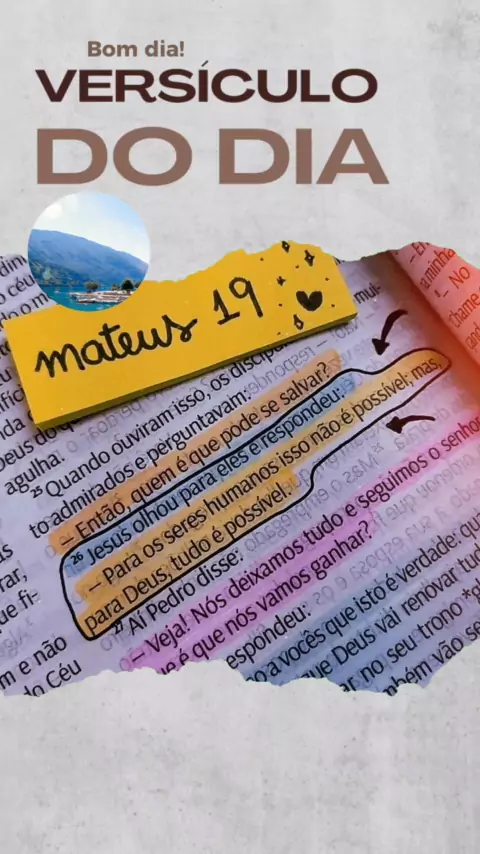 Bom dia!
VERSÍCULO
DO DIA
mateus 19
agulha.
25 Quando ouviram isso, os discípu
to admirados e perguntavam:
— Então, quem é que pode se salvar?
26 Jesus olhou para eles e respondeu:
— Para os seres humanos isso não é possível; mas,
para Deus, tudo é possível.
27 Aí Pedro disse:
— Veja! Nós deixamos tudo e seguimos o senhor
e é que nós vamos ganhar?
espondeu:
o a vocês que isto é verdade: qu
ue Deus vai renovar tud
ar no seu trono *g
mbém vão se
rar,
que fi-
m e não
do Céu
a minha
— No
chame